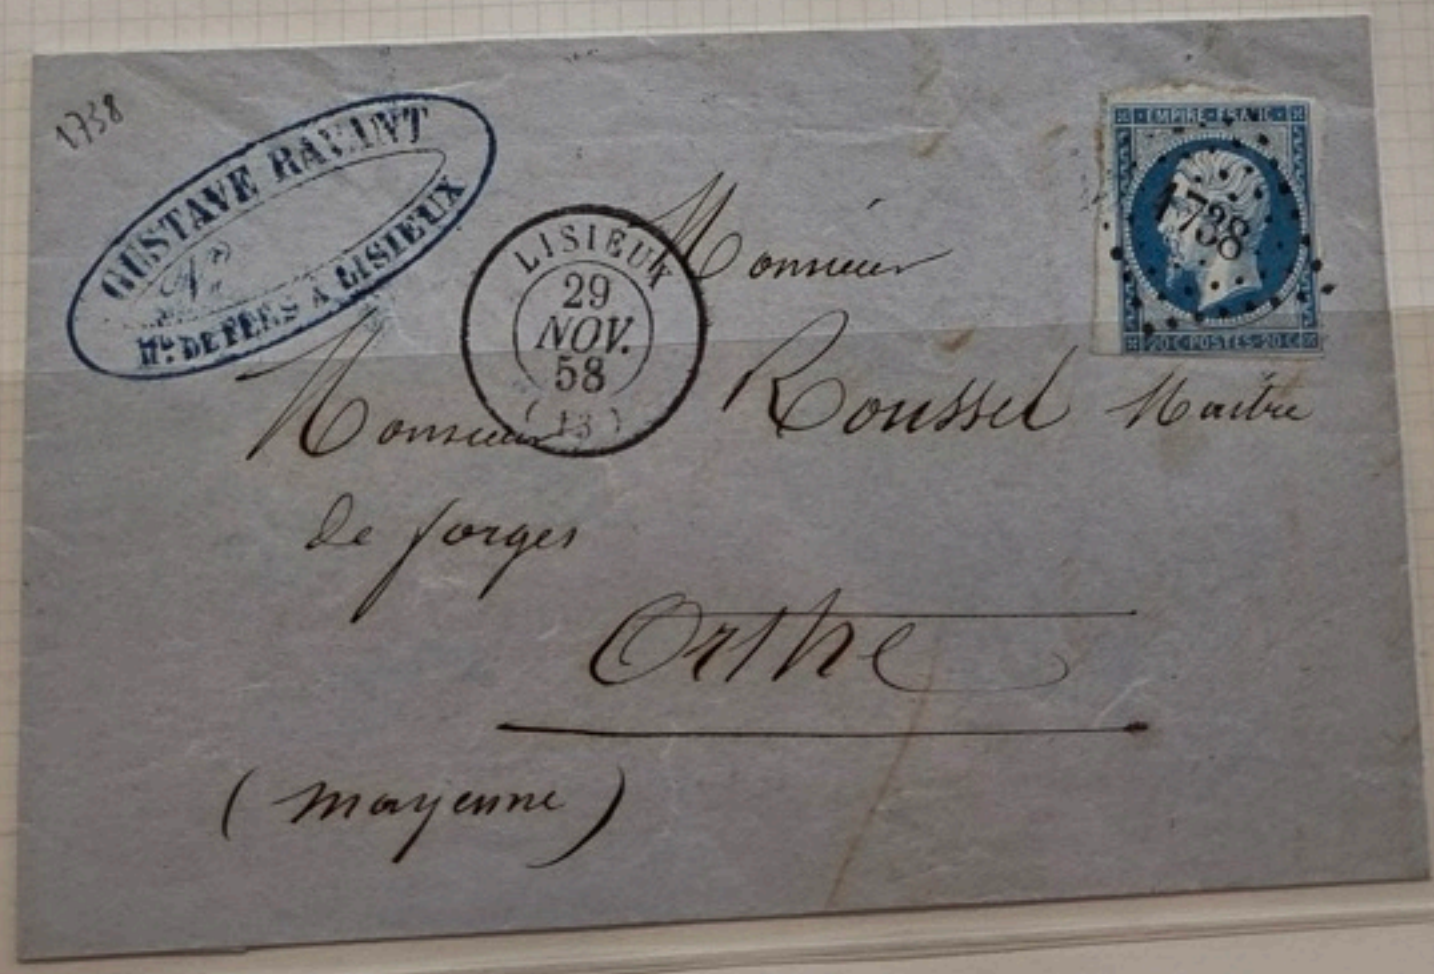 1738
GUSTAVE RAVANT
Md. DE FERS A LISIEUX
LISIEUX
29
NOV.
58
(13)
EMPIRE FRANC
1738
20 C POSTES 20 C
Monsieur
Monsieur Roussel Maître
de forges
Orthe
(Mayenne)